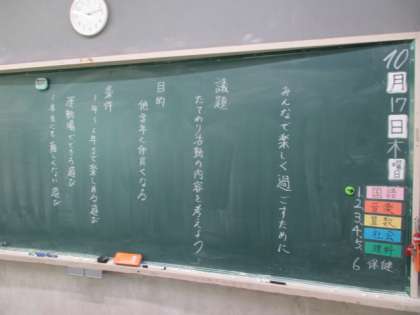 10月17日木曜
みんなで楽しく過ごすために
議題
たてわり活動の内容を考えよう
目的
他学年と仲良くなる
条件
1年〜6年まで楽しめる遊び
運動場でできる遊び
1年生にも難しくない遊び
1 国語
2 音楽
3 算数
4 社会
5 理科
6 保健